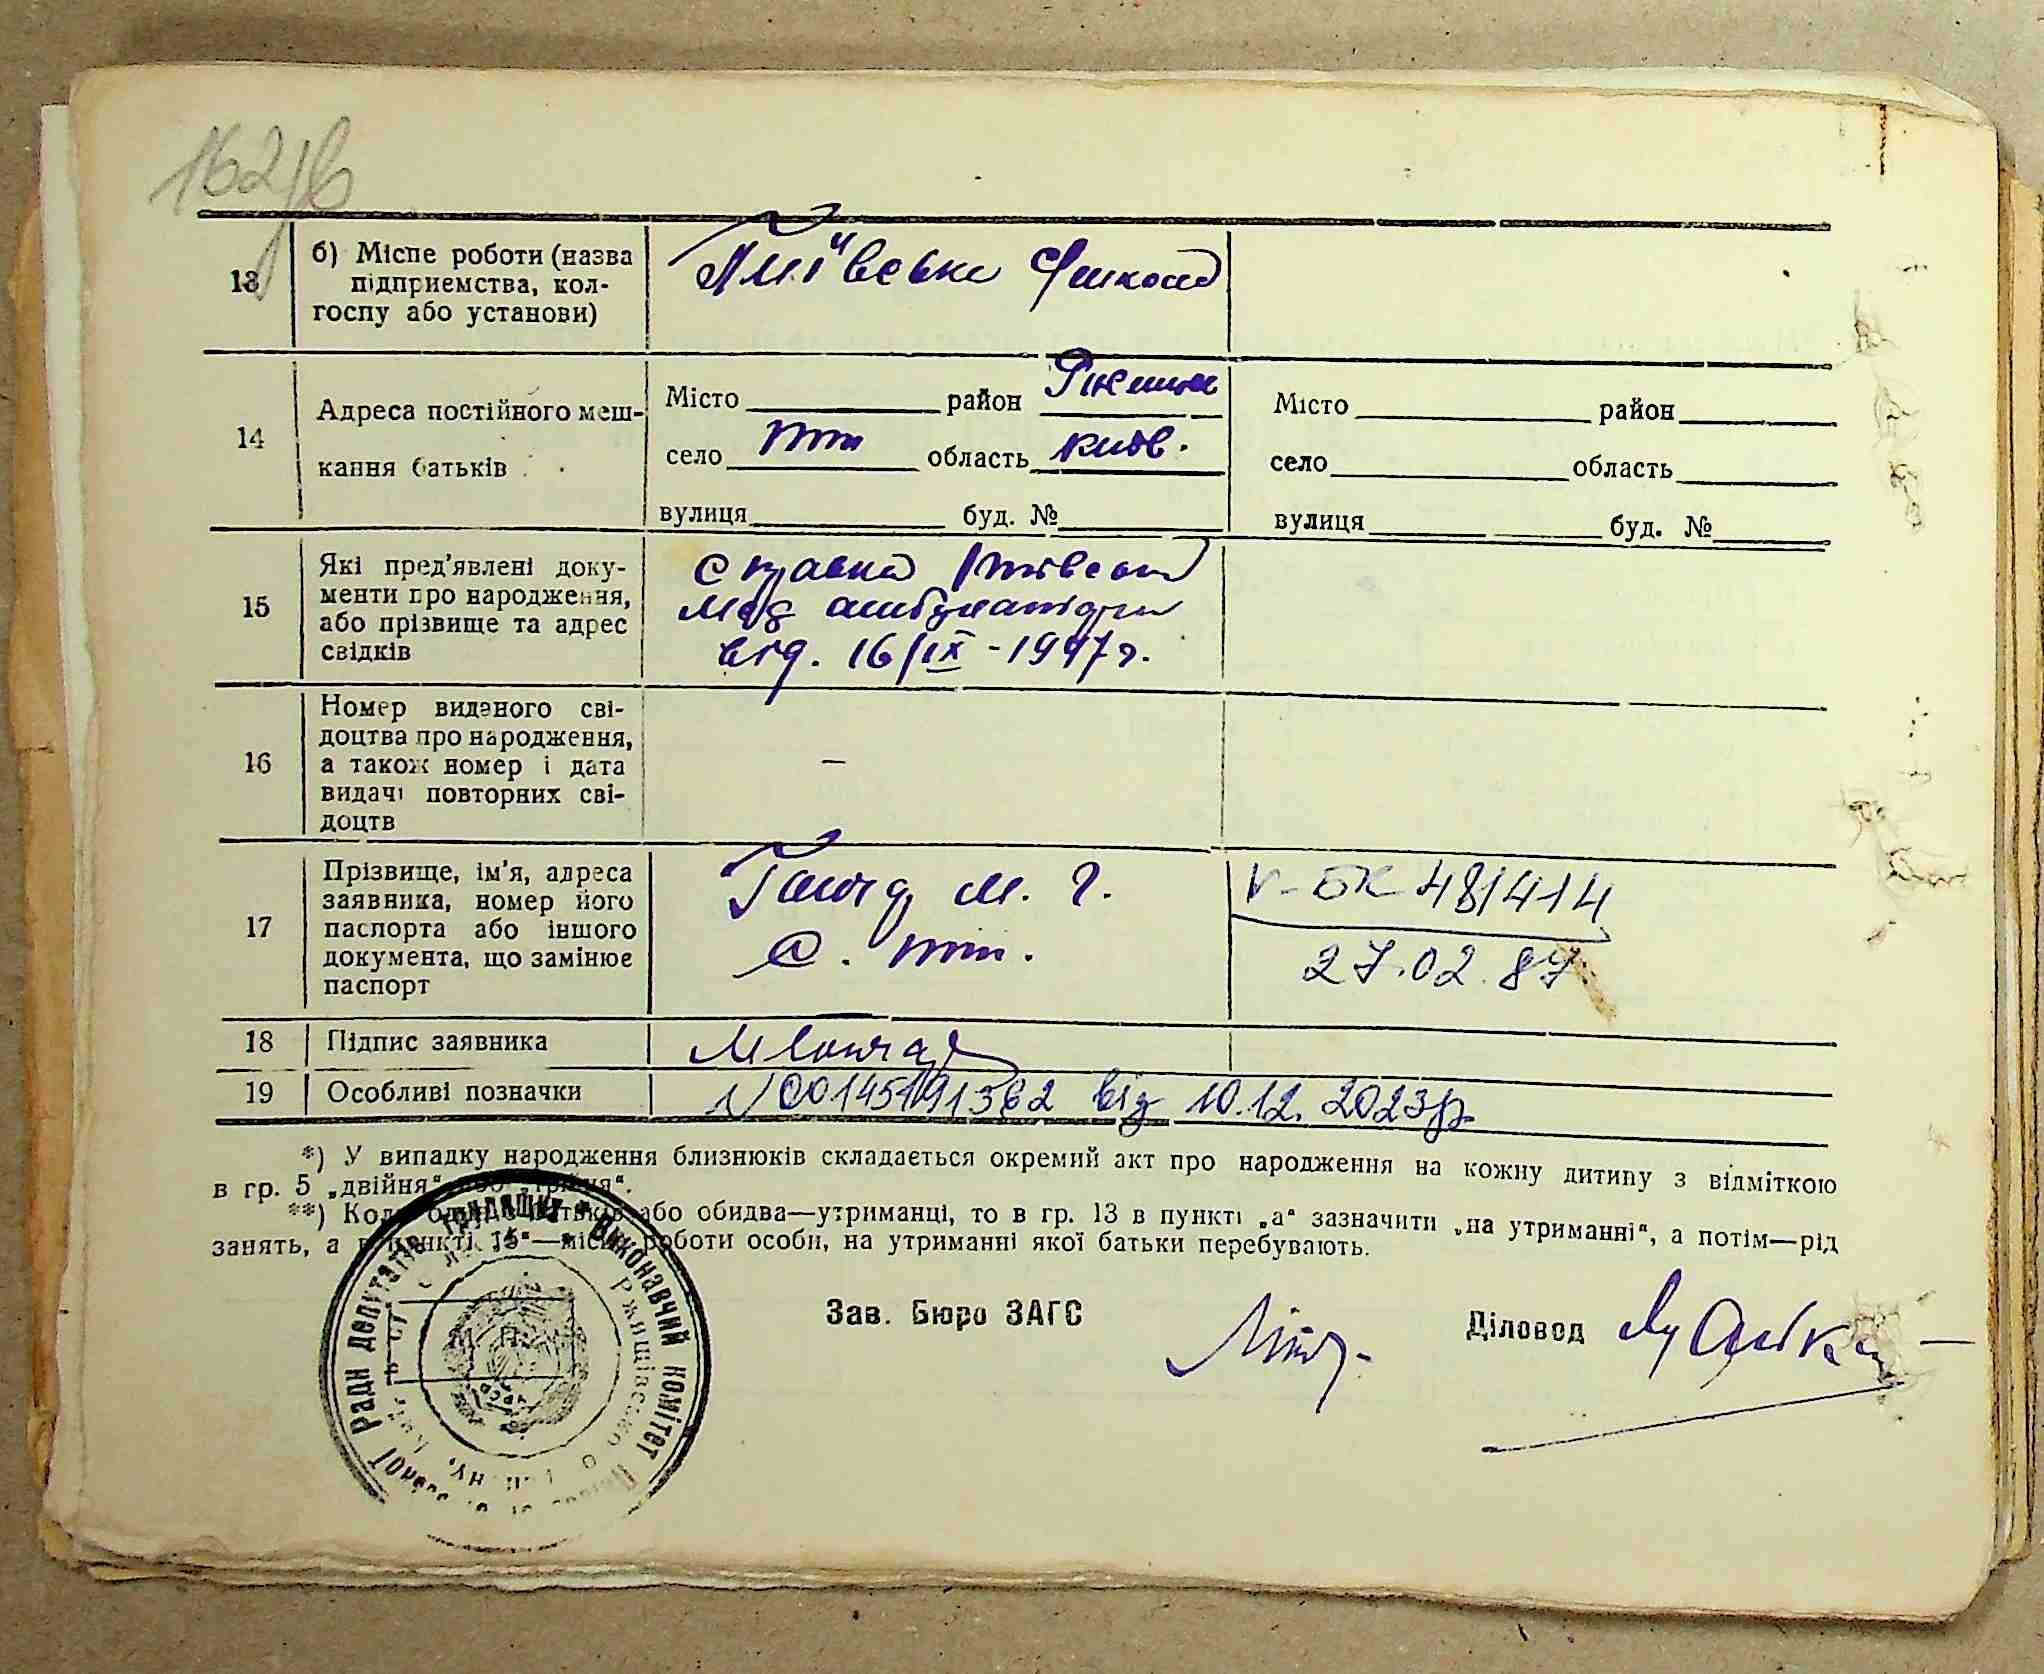 13
б) Місце роботи (назва
підприємства, кол-
госпу або установи)
14
Адреса постійного меш-
кання батьків
Місто район
село область київ.
вулиця буд. №
Місто район
село область
вулиця буд. №
15
Які пред'явлені доку-
менти про народження,
або прізвище та адрес
свідків
Справка
Мед амбулатории
від. 16/IX - 1947 г.
16
Номер виданого сві-
доцтва про народження,
а також номер і дата
видачі повторних сві-
доцтв
—
17
Прізвище, ім'я, адреса
заявника, номер його
паспорта або іншого
документа, що замінює
паспорт
М. Г.
с.
V-БК 481414
27.02.87
18
Підпис заявника
19
Особливі позначки
N 00145191362 від 10.12.2023р.
*) У випадку народження близнюків складається окремий акт про народження на кожну дитину з відміткою
в гр. 5 „двійня“ або „трійня“.
**) Коли один з батьків або обидва—утриманці, то в гр. 13 в пункті „а“ зазначити „на утриманні“, а потім—рід
занять, а в пункті „б“—місце роботи особи, на утриманні якої батьки перебувають.
Виконавчий комітет
Ради депутатів трудящих
Ржищівського
М. П.
Зав. Бюро ЗАГС
Діловод